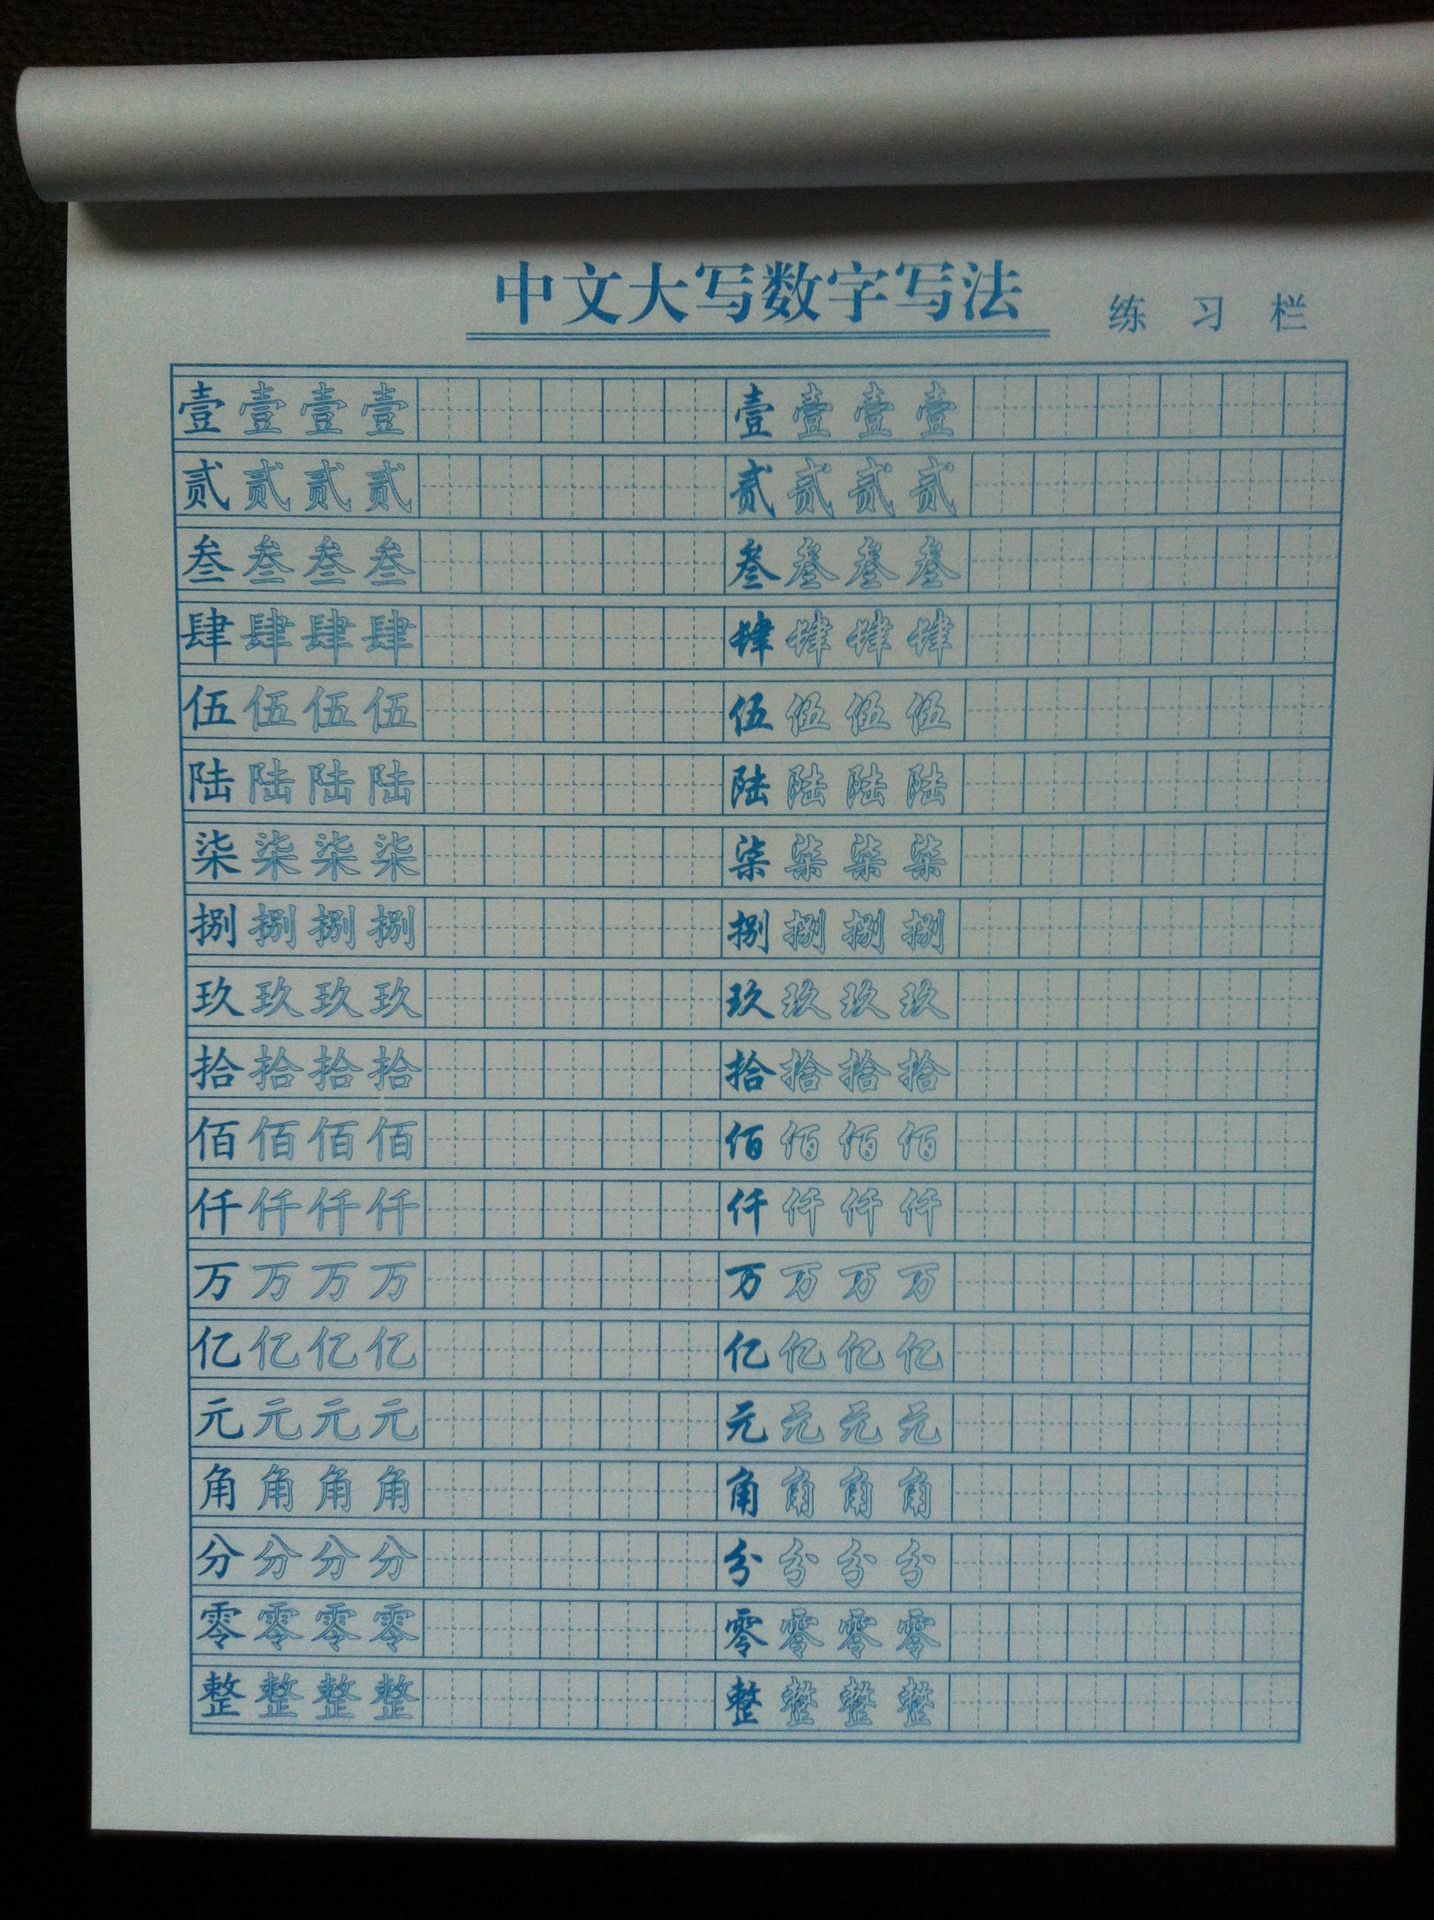 中文大写数字写法 练习栏
壹壹壹壹 壹壹壹壹
贰贰贰贰 贰贰贰贰
叁叁叁叁 叁叁叁叁
肆肆肆肆 肆肆肆肆
伍伍伍伍 伍伍伍伍
陆陆陆陆 陆陆陆陆
柒柒柒柒 柒柒柒柒
捌捌捌捌 捌捌捌捌
玖玖玖玖 玖玖玖玖
拾拾拾拾 拾拾拾拾
佰佰佰佰 佰佰佰佰
仟仟仟仟 仟仟仟仟
万万万万 万万万万
亿亿亿亿 亿亿亿亿
元元元元 元元元元
角角角角 角角角角
分分分分 分分分分
零零零零 零零零零
整整整整 整整整整